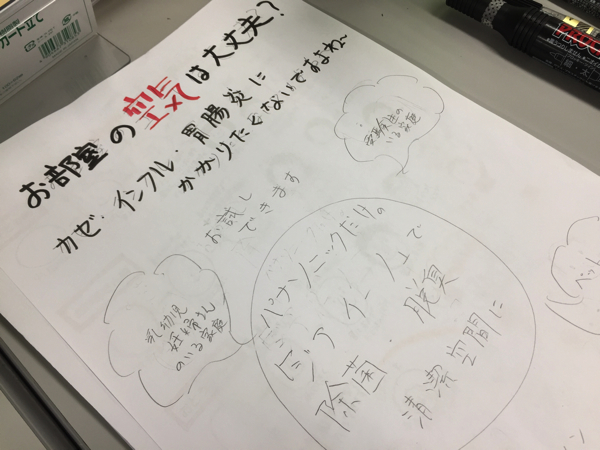 カード立て
お部屋の空気は大丈夫?
カゼ・インフル・胃腸炎に
かかりたくないですよね~
受験生の
いる家庭
お試し
できます
パナソニックだけの
ジアイーノで
除菌・脱臭
清潔空間に
乳幼児
妊婦さん
のいる家庭
ペット